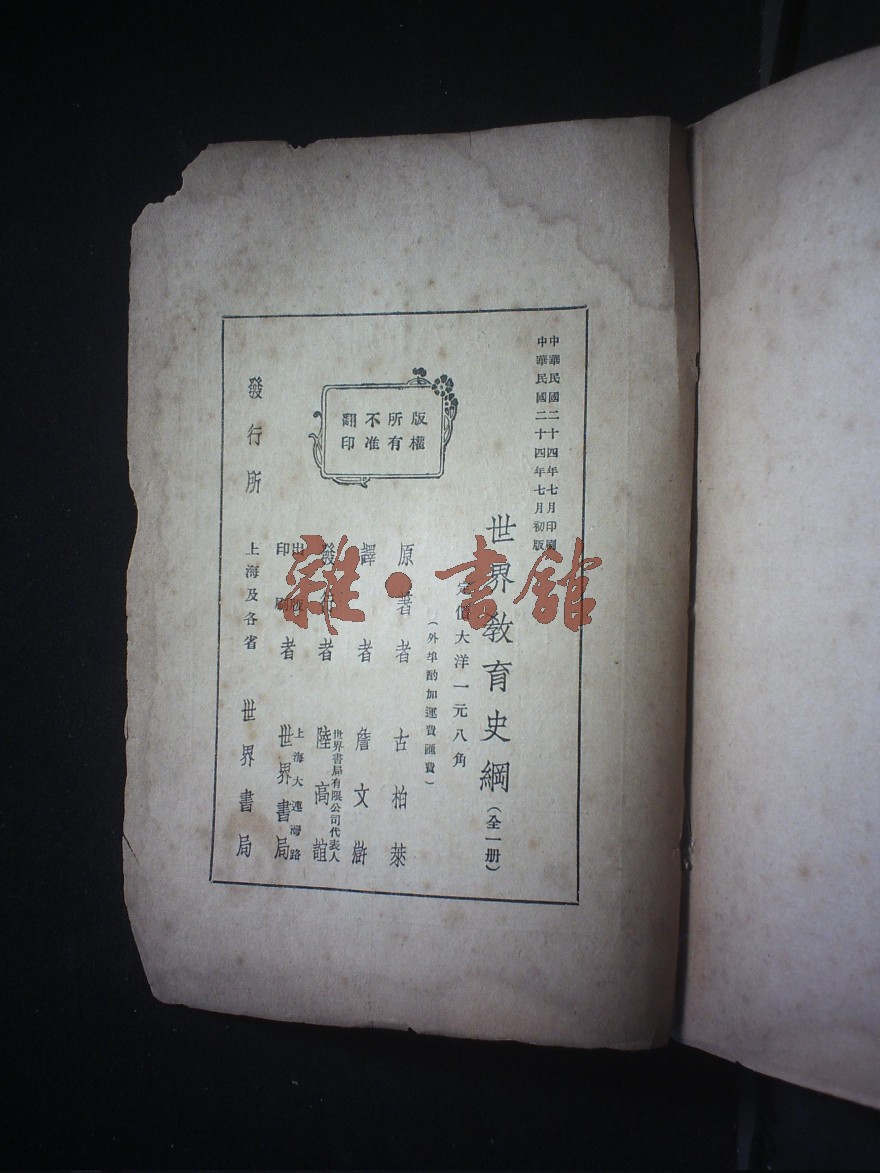 中華民國二十四年七月印刷
中華民國二十四年七月初版
世界教育史綱(全一册)
定價大洋一元八角
(外埠酌加運費匯費)
原著者 古柏萊
譯者 詹文滸
發行者 世界書局有限公司代表人 陸高誼
出版印刷者 上海大連灣路 世界書局
發行所 上海及各省 世界書局
版權
所有
不准
翻印
雜·書館